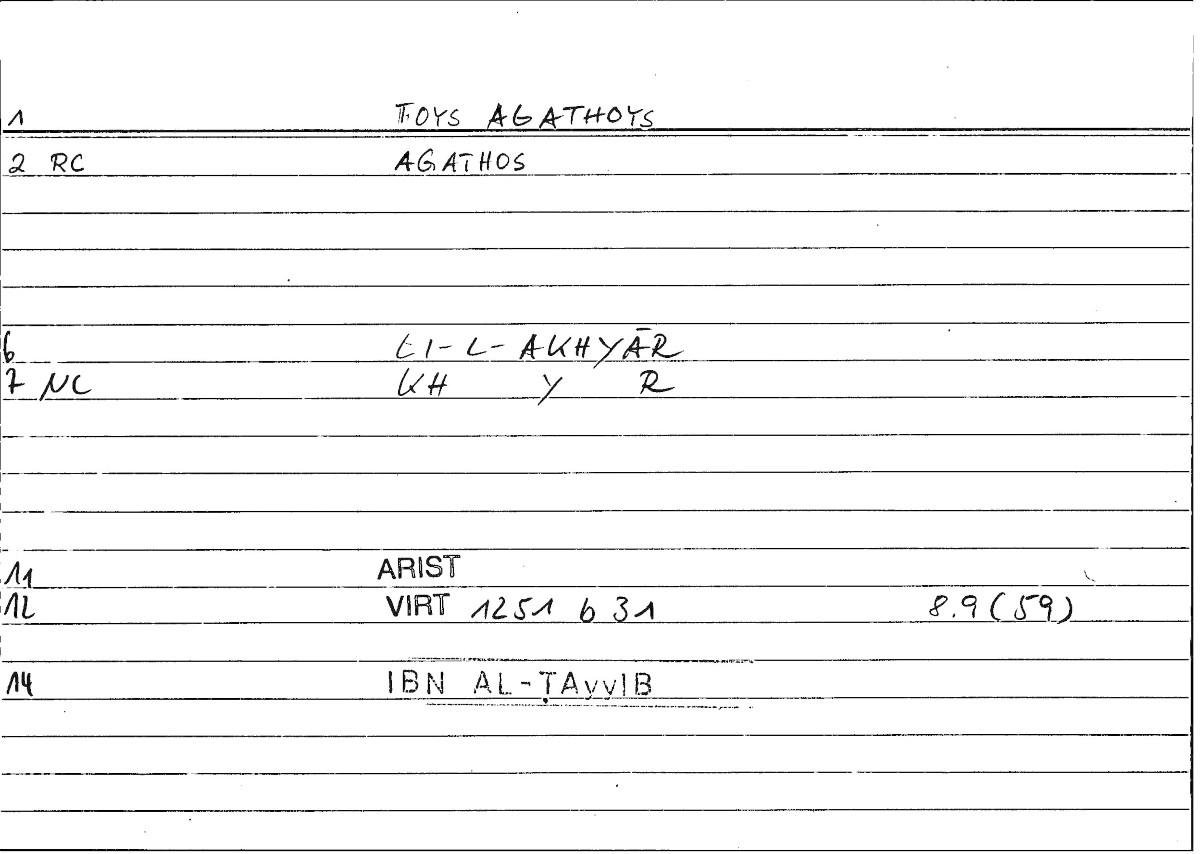 1 TOYS AGATHOYS
2 RC AGATHOS
6 LI-L-AKHYĀR
7 NC KH Y R
11 ARIST
12 VIRT 1251 b 31 8.9 (59)
14 IBN AL-ṬAyyIB